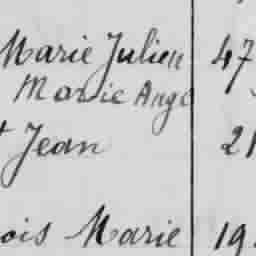 Marie Julien 47
Marie Ange
t Jean 21
ois Marie 19